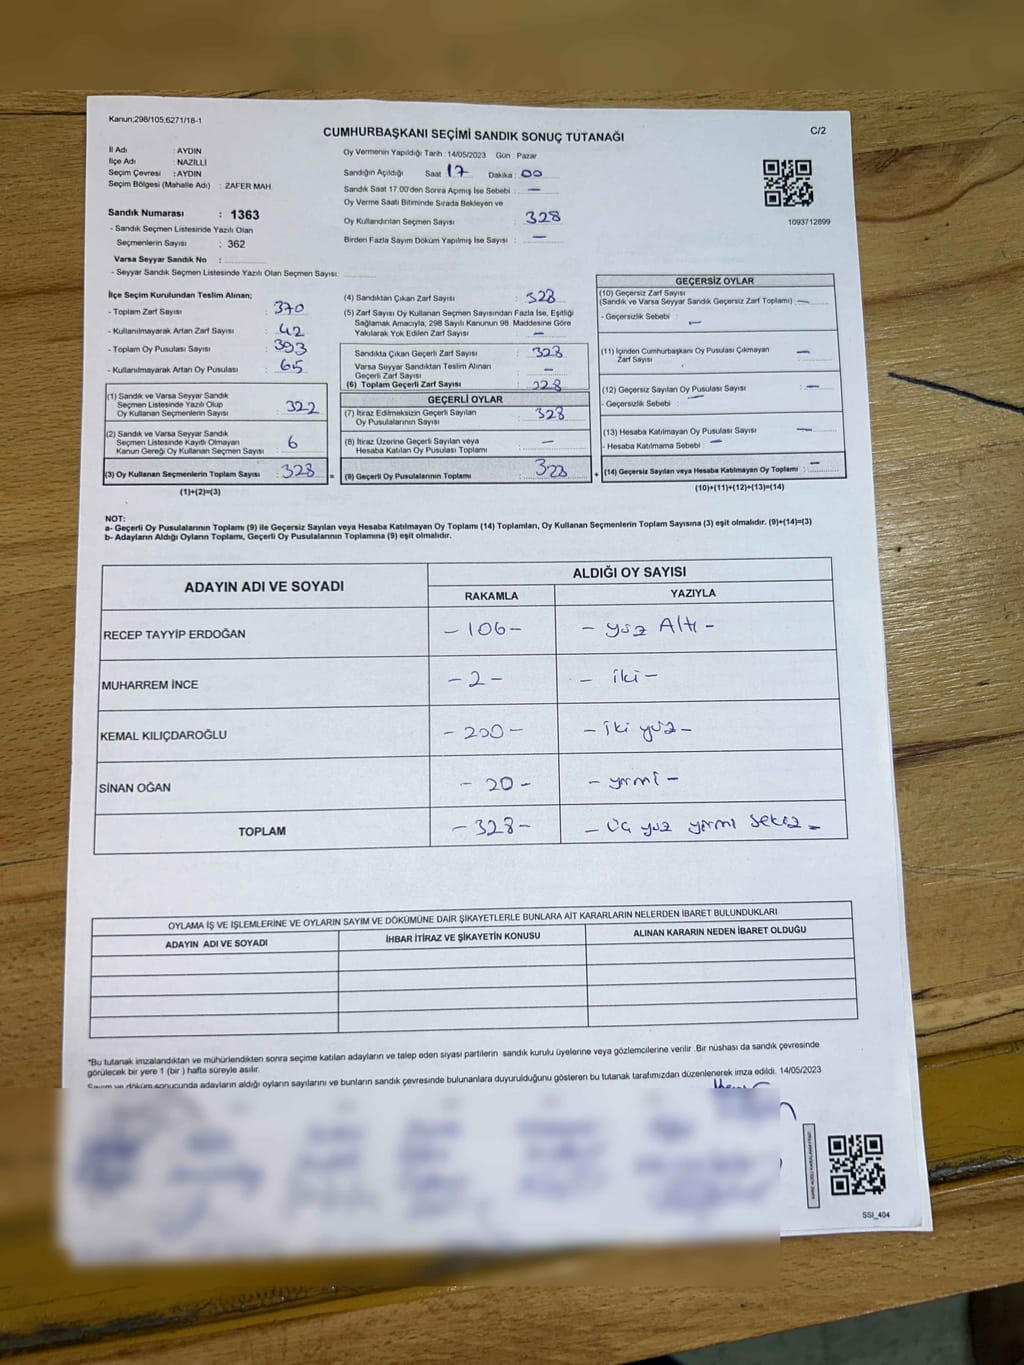 Kanun;298/105,6271/18-1
C/2
CUMHURBAŞKANI SEÇİMİ SANDIK SONUÇ TUTANAĞI
İl Adı : AYDIN
İlçe Adı : NAZİLLİ
Seçim Çevresi : AYDIN
Seçim Bölgesi (Mahalle Adı) : ZAFER MAH.
Sandık Numarası : 1363
- Sandık Seçmen Listesinde Yazılı Olan
Seçmenlerin Sayısı : 362
Varsa Seyyar Sandık No :
- Seyyar Sandık Seçmen Listesinde Yazılı Olan Seçmen Sayısı:
Oy Vermenin Yapıldığı Tarih : 14/05/2023 Gün : Pazar
Sandığın Açıldığı Saat 17 Dakika : 00
Sandık Saat 17.00'den Sonra Açımış İse Sebebi : —
Oy Verme Saati Bitiminde Sırada Bekleyen ve
Oy Kullandırılan Seçmen Sayısı : 328
Birden Fazla Sayım Döküm Yapılmış İse Sayısı : —
1093712899
İlçe Seçim Kurulundan Teslim Alınan;
- Toplam Zarf Sayısı : 370
- Kullanılmayarak Artan Zarf Sayısı : 42
- Toplam Oy Pusulası Sayısı : 393
- Kullanılmayarak Artan Oy Pusulası : 65
(1) Sandık ve Varsa Seyyar Sandık
Seçmen Listesinde Yazılı Olup
Oy Kullanan Seçmenlerin Sayısı : 322
(2) Sandık ve Varsa Seyyar Sandık
Seçmen Listesinde Kayıtlı Olmayan
Kanun Gereği Oy Kullanan Seçmen Sayısı : 6
(3) Oy Kullanan Seçmenlerin Toplam Sayısı : 328
(1)+(2)=(3)
(4) Sandıktan Çıkan Zarf Sayısı : 328
(5) Zarf Sayısı Oy Kullanan Seçmen Sayısından Fazla İse, Eşitliği
Sağlamak Amacıyla, 298 Sayılı Kanunun 98. Maddesine Göre
Yakılarak Yok Edilen Zarf Sayısı : —
Sandıkta Çıkan Geçerli Zarf Sayısı : 328
Varsa Seyyar Sandıktan Teslim Alınan
Geçerli Zarf Sayısı : —
(6) Toplam Geçerli Zarf Sayısı : 328
GEÇERLİ OYLAR
(7) İtiraz Edilmeksizin Geçerli Sayılan
Oy Pusulasının Sayısı : 328
(8) İtiraz Üzerine Geçerli Sayılan veya
Hesaba Katılan Oy Pusulası Toplamı : —
= (9) Geçerli Oy Pusulalarının Toplamı : 328 +
GEÇERSİZ OYLAR
(10) Geçersiz Zarf Sayısı
(Sandık ve Varsa Seyyar Sandık Geçersiz Zarf Toplamı) : —
- Geçersizlik Sebebi : —
(11) İçinden Cumhurbaşkanı Oy Pusulası Çıkmayan
Zarf Sayısı : —
(12) Geçersiz Sayılan Oy Pusulası Sayısı : —
- Geçersizlik Sebebi : —
(13) Hesaba Katılmayan Oy Pusulası Sayısı : —
- Hesaba Katılmama Sebebi : —
(14) Geçersiz Sayılan veya Hesaba Katılmayan Oy Toplamı : —
(10)+(11)+(12)+(13)=(14)
NOT:
a- Geçerli Oy Pusulalarının Toplamı (9) ile Geçersiz Sayılan veya Hesaba Katılmayan Oy Toplamı (14) Toplamları, Oy Kullanan Seçmenlerin Toplam Sayısına (3) eşit olmalıdır. (9)+(14)=(3)
b- Adayların Aldığı Oyların Toplamı, Geçerli Oy Pusulalarının Toplamına (9) eşit olmalıdır.
ADAYIN ADI VE SOYADI ALDIĞI OY SAYISI
RAKAMLA YAZIYLA
RECEP TAYYİP ERDOĞAN - 106 - - yüz Altı -
MUHARREM İNCE - 2 - - iki -
KEMAL KILIÇDAROĞLU - 200 - - iki yüz -
SİNAN OĞAN - 20 - - yirmi -
TOPLAM - 328 - - Üç yüz yirmi sekiz -
OYLAMA İŞ VE İŞLEMLERİNE VE OYLARIN SAYIM VE DÖKÜMÜNE DAİR ŞİKAYETLERLE BUNLARA AİT KARARLARIN NELERDEN İBARET BULUNDUKLARI
ADAYIN ADI VE SOYADI İHBAR İTİRAZ VE ŞİKAYETİN KONUSU ALINAN KARARIN NEDEN İBARET OLDUĞU
*Bu tutanak imzalandıktan ve mühürlendikten sonra seçime katılan adayların ve talep eden siyasi partilerin sandık kurulu üyelerine veya gözlemcilerine verilir .Bir nüshası da sandık çevresinde
görülecek bir yere 1 (bir ) hafta süreyle asılır.
Sayım ve döküm sonucunda adayların aldığı oyların sayılarını ve bunların sandık çevresinde bulunanlara duyurulduğunu gösteren bu tutanak tarafımızdan düzenlenerek imza edildi. 14/05/2023
SSI_404